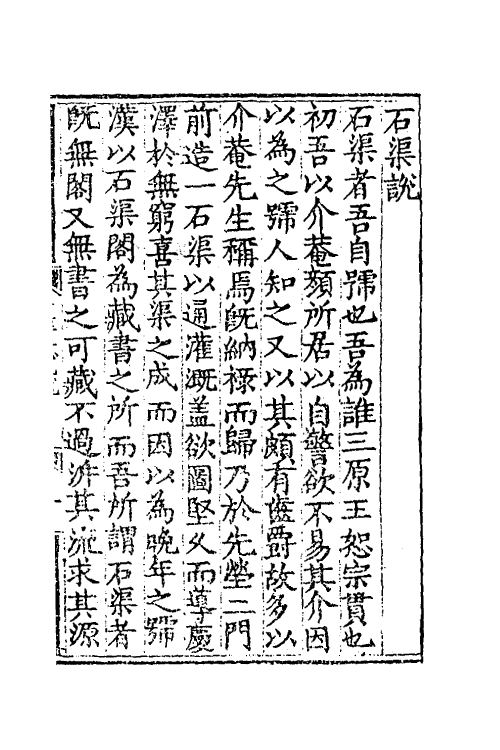 石渠說
石渠者吾自號也吾為誰三原王恕宗貫也
初吾以介菴顏所居以自警欲不易其介因
以為之號人知之又以其頗有齒爵故多以
介菴先生稱焉旣納祿而歸乃於先塋二門
前造一石渠以通灌溉盖欲圖堅久而導慶
澤於無窮喜其渠之成而因以為晚年之號
漢以石渠閣為藏書之所而吾所謂石渠者
旣無閣又無書之可藏不過泝其流求其源